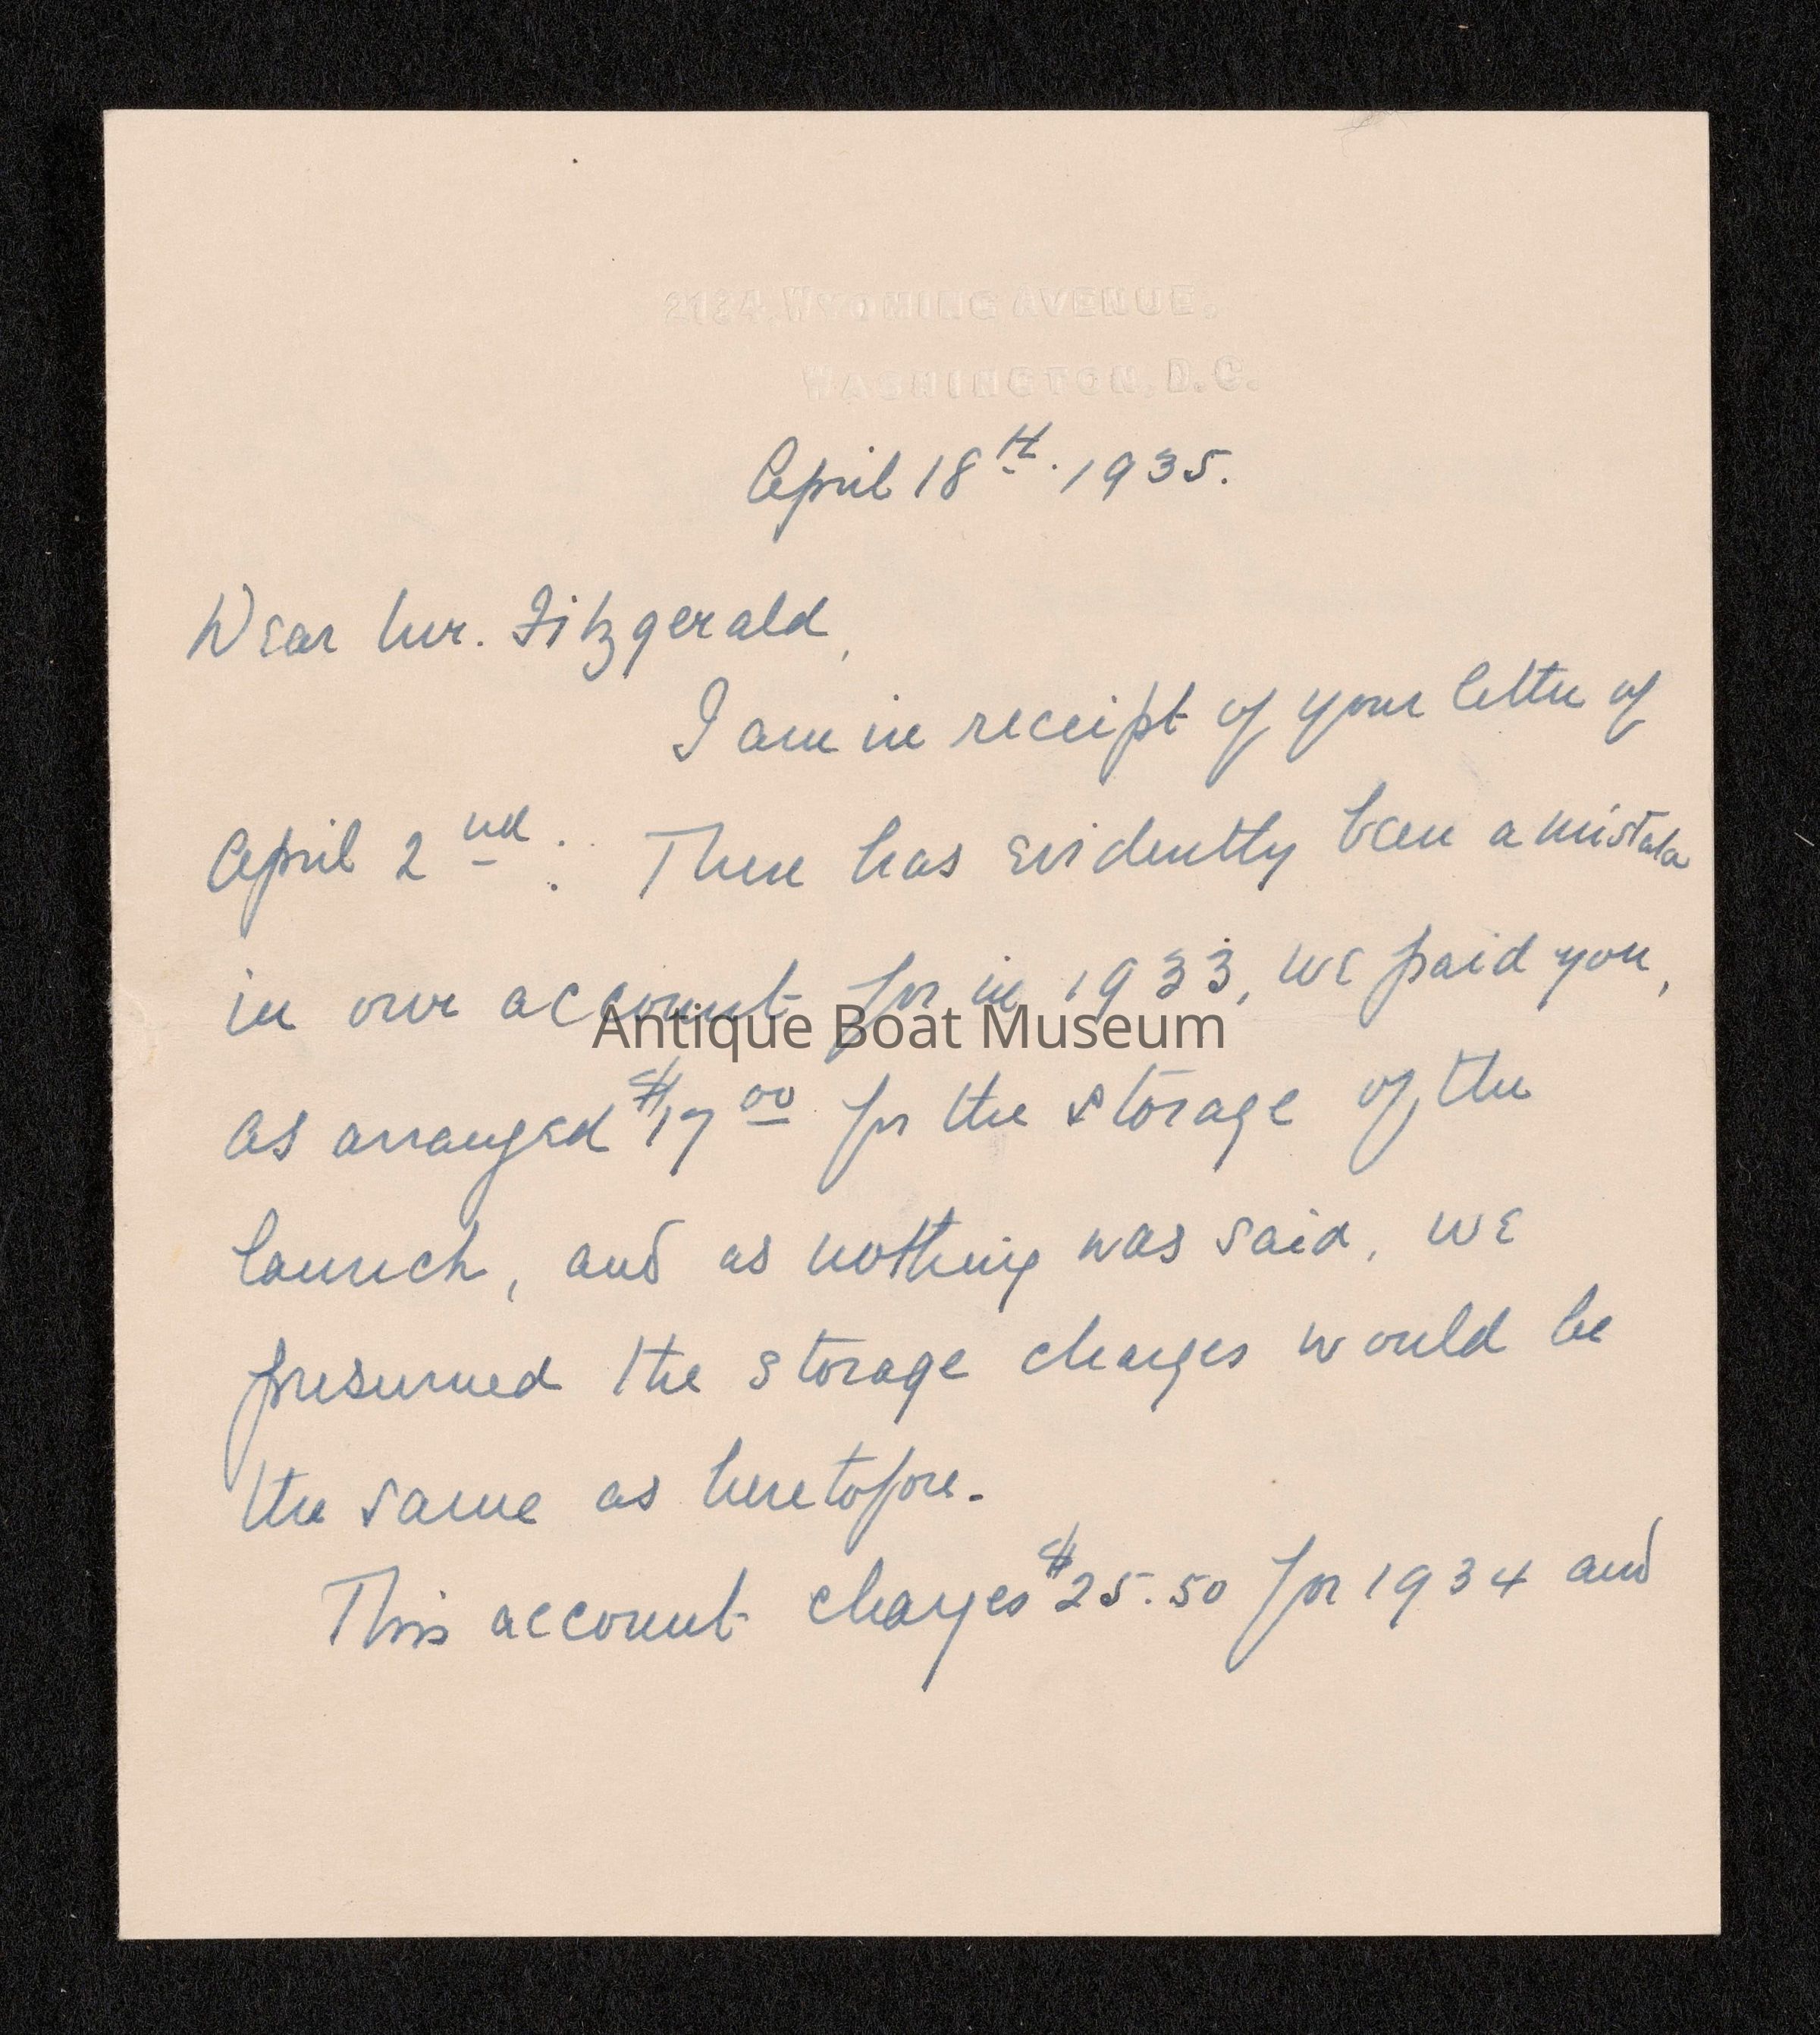 2134, WYOMING AVENUE,
WASHINGTON, D.C.
April 18th. 1935.
Dear Mr. Fitzgerald,
I am in receipt of your letter of
April 2nd: There has evidently been a mistake
in our account for in 1933, we paid you,
Antique Boat Museum
as arranged $17 00 for the storage of the
launch, and as nothing was said, we
presumed the storage charges would be
the same as heretofore.
This account charges $25.50 for 1934 and